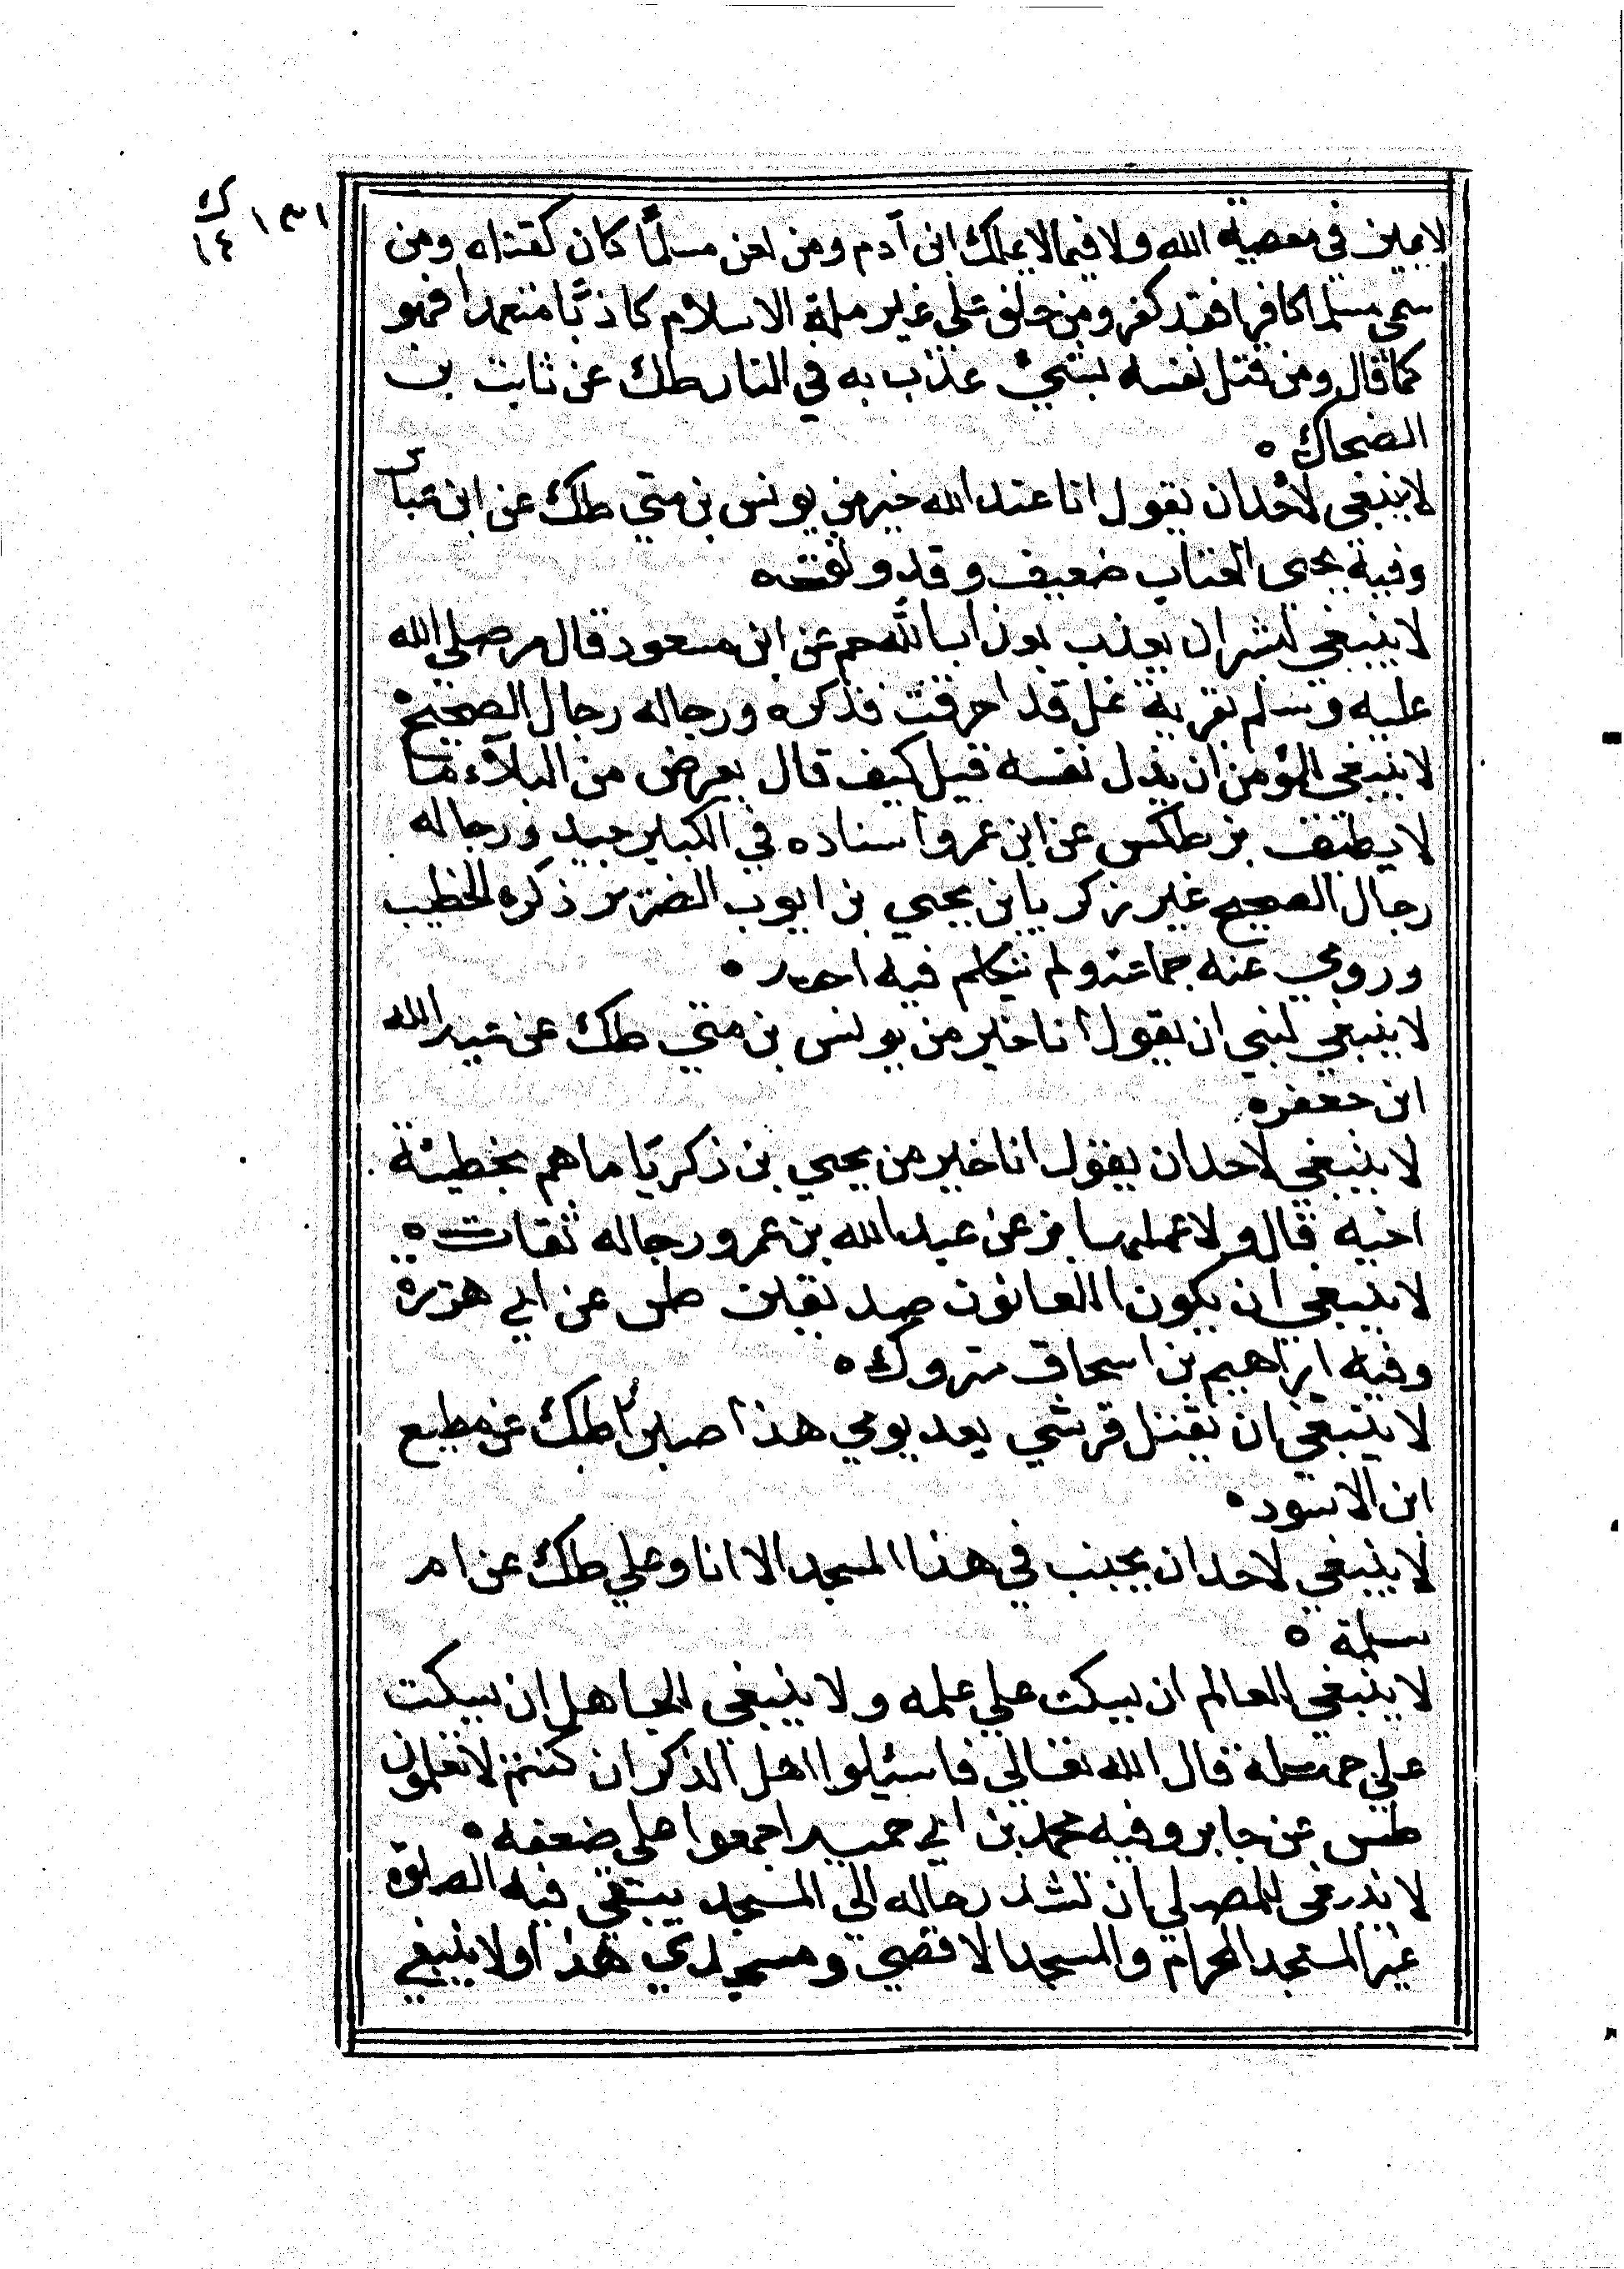 لا يمين في معصية الله ولا فيما لا يملك ابن آدم ومن لعن مسلمًا كان كقتله ومن
سمى مسلما كافرا فقد كفر ومن حلف على غير ملة الاسلام كاذبًا متعمدا فهو
كما قال ومن قتل نفسه بشيء عذب به في النار طك عن ثابت بن
الضحاك ه
لا ينبغي لأحد ان يقول انا عند الله خير من يونس بن متي طك عن ابن عباس
وفيه يحيى القتات ضعيف وقد وثقه
لا ينبغي لبشر ان يعذب بعذاب الله حم عن ابن مسعود قال مر صلي الله
عليه وسلم بقرية نمل قد احرقت فذكره ورجاله رجال الصحيح ه
لا ينبغي لمؤمن ان يذل نفسه قيل كيف قال يعرض من البلاء ما
لا يطيق بز طكس عن ابن عمر واسناده في الكبير جيد ورجاله
رجال الصحيح غير زكريا بن يحيي بن ايوب الضرير ذكره الخطيب
وروي عنه جماعة ولم يتكلم فيه احد ه
لا ينبغي لنبي ان يقول انا خير من يونس بن متي طك عن عبد الله
ابن جعفر ه
لا ينبغي لاحد ان يقول انا خير من يحيي بن زكريا ما هم بخطيئة
قال ولا عملها بز عن عبد الله بن عمرو رجاله ثقات ه
لا ينبغي ان يكون اللعانون صديقين طس عن ابي هريرة
وفيه ابراهيم بن اسحاق متروك ه
لا ينبغي ان يقتل قرشي بعد يومي هذا صبرًا طك عن مطيع
ابن الاسود ه
لا ينبغي لاحد ان يجنب في هذا المسجد الا انا وعلي طك عن ام
سلمة ه
لا ينبغي للعالم ان يسكت علي علمه ولا ينبغي للجاهل ان يسكت
علي جهله قال الله تعالي فاسئلوا اهل الذكر ان كنتم لا تعلمون
طس عن جابر وفيه محمد بن ابي حميد اجمعوا علي ضعفه ه
لا ينبغي للمصلي ان تشد رحاله الي المسجد يبتغي فيه الصلوة
غير المسجد الحرام والمسجد الاقصي ومسجدي هذا ولا ينبغي